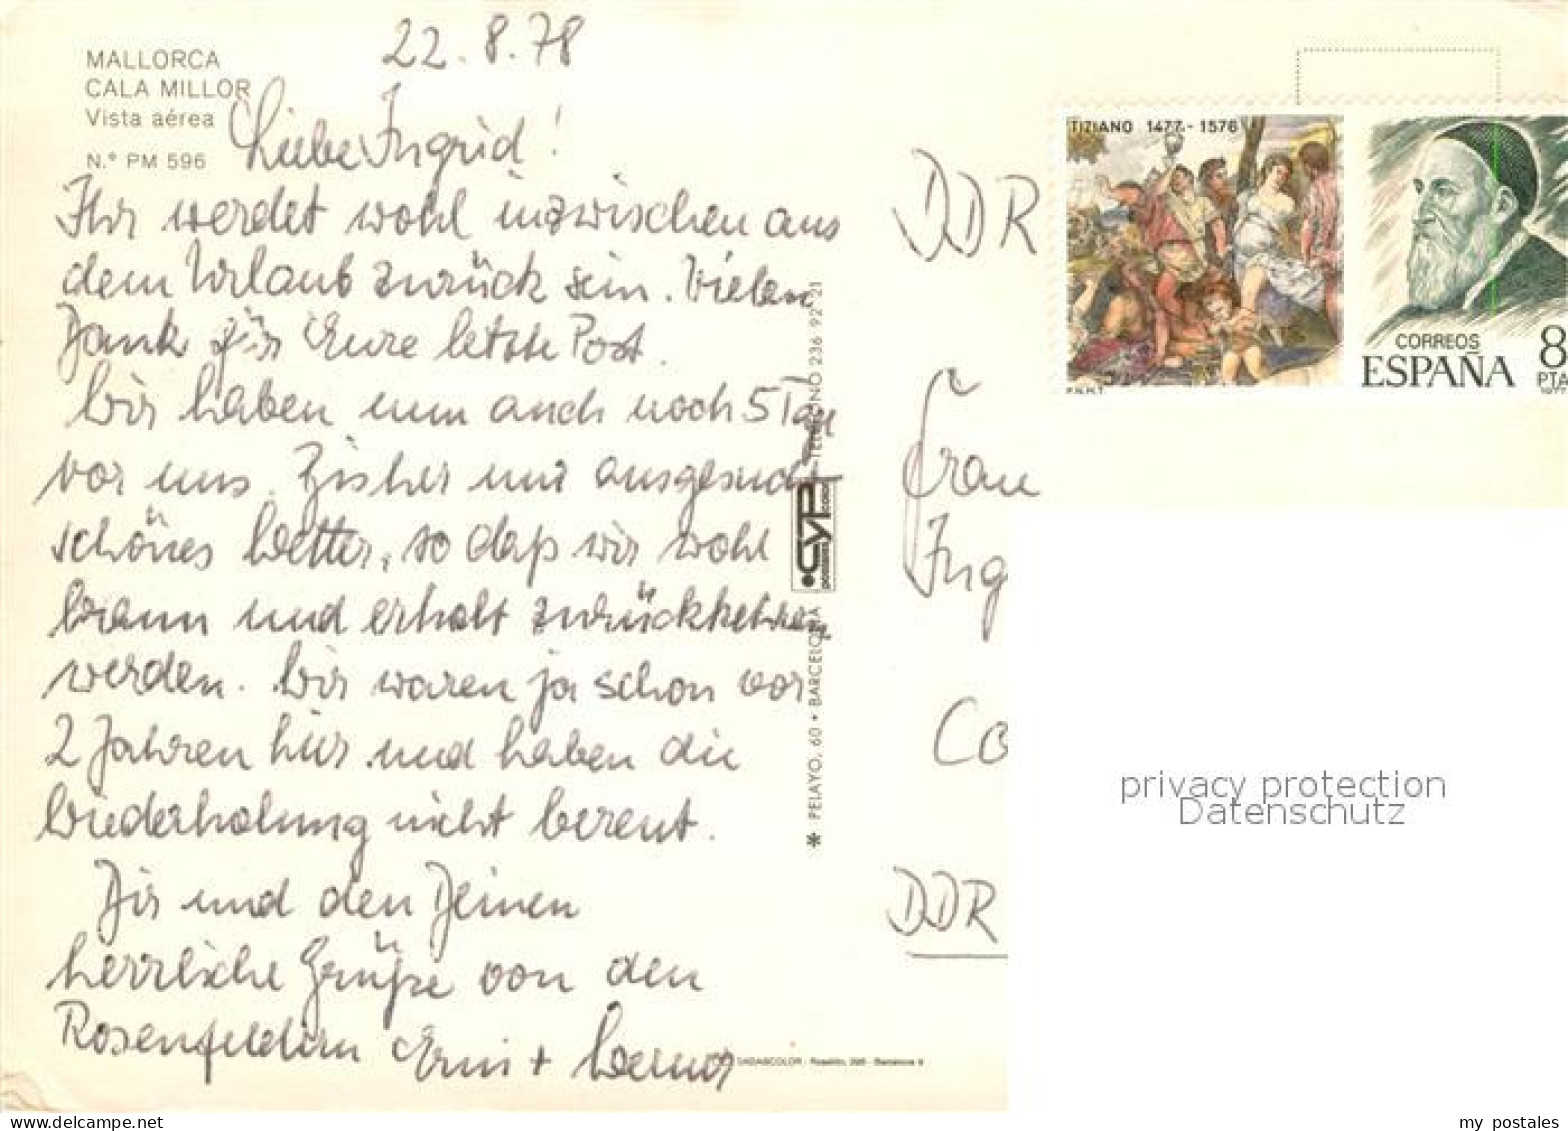 22.8.78
MALLORCA
CALA MILLOR
Vista aérea
N.° PM 596
Liebe Ingrid!
Ihr werdet wohl inzwischen aus
dem Urlaub zurück sein. Vielen
Dank für Eure letzte Post.
Wir haben nun auch noch 5 Tage
vor uns. Bisher nur ausgesucht
schönes Wetter, so daß wir wohl
braun und erholt zurückkehren
werden. Wir waren ja schon vor
2 Jahren hier und haben die
Wiederholung nicht bereut.
Dir und den Deinen
herzliche Grüße von den
Rosenfeldern Erni + Werner
* PELAYO, 60 • BARCELONA
CYP
TELEFONO 236 92 21
TIZIANO 1477 - 1576
F.N.M.T.
CORREOS
ESPAÑA
8
PTA
DDR
Frau
Ing
Co
DDR
privacy protection
Datenschutz
my postales